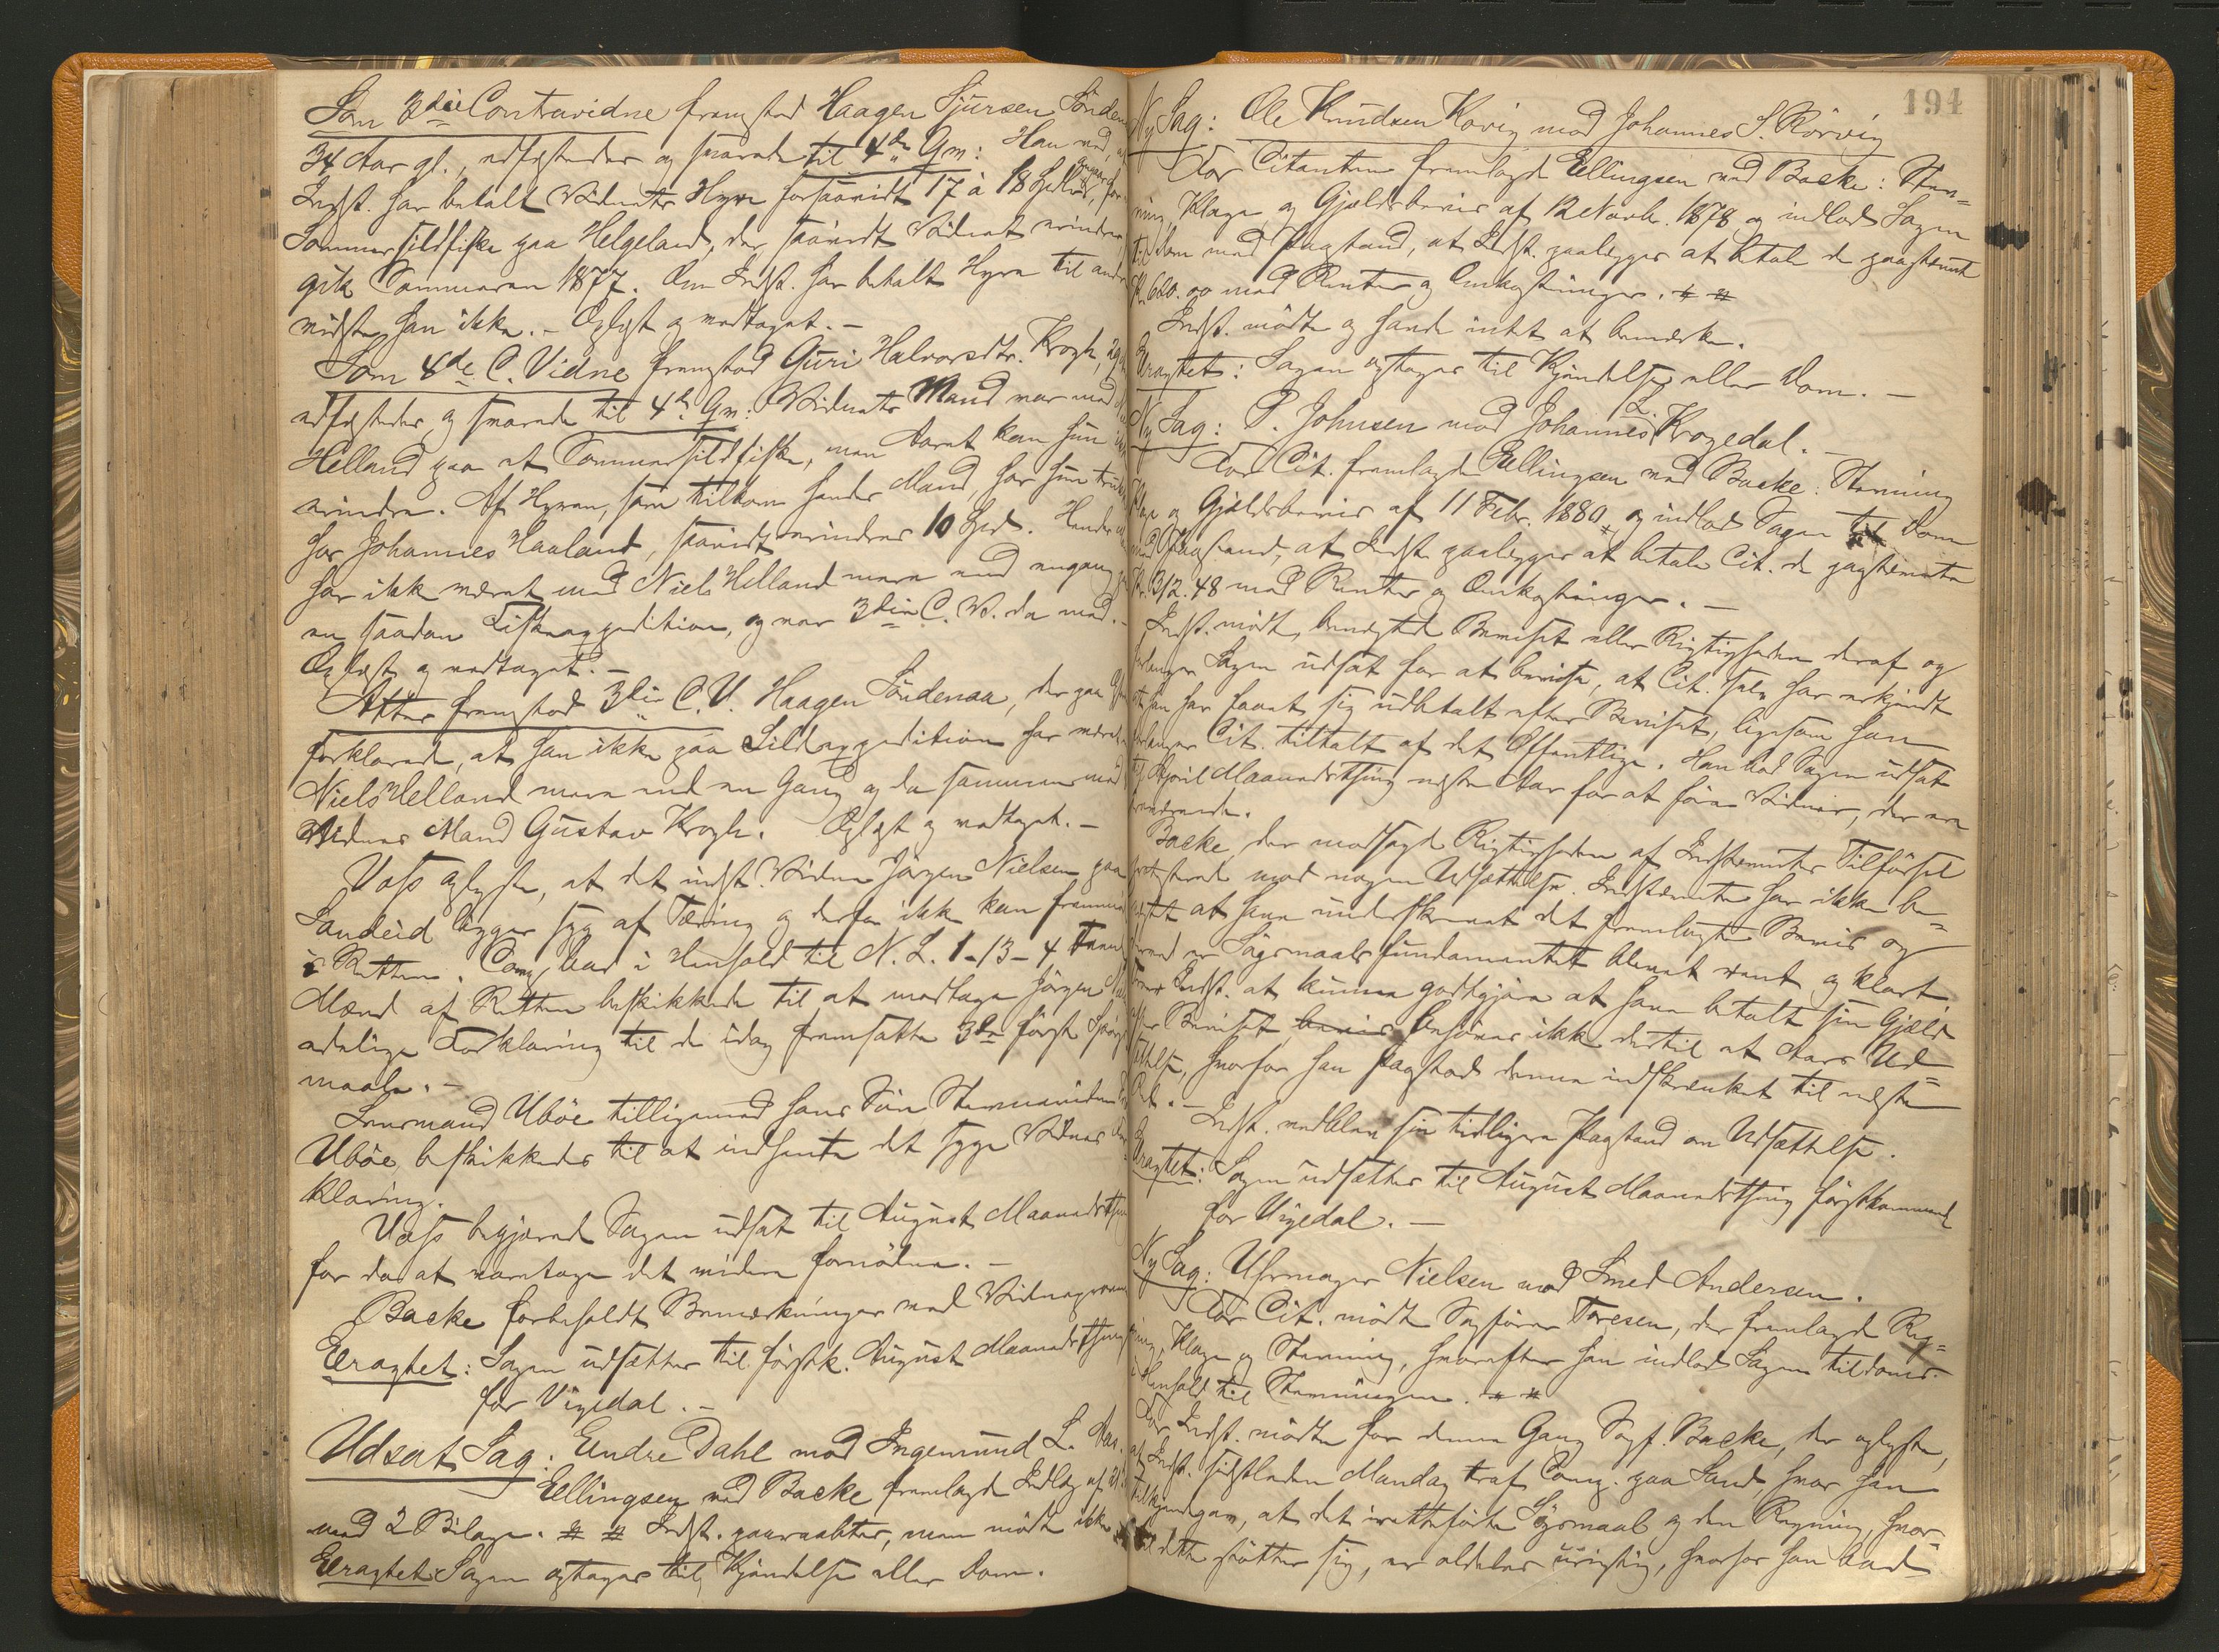 Som 3die Contravidne fremstod Haagen Sjursen Sönden
34 Aar gl., edfæstedes og svarede til 4de Qm: Han ved, at
Indst. har betalt Vidnets Hyre forsaavidt 17 à 18 Spd. for
Sommersildfiske paa Helgeland, der, saavidt Vidnet erindrer,
gik Sommeren 1877. Om Indst. har betalt Hyre til andre
vidste han ikke. – Oplæst og vedtaget. –
Som 4de C. Vidne fremstod Guri Halvorsdtr. Krogh, 29
edfæstedes og svarede til 4de Qm: Vidnets Mand var med
Helland paa et Sommersildfiske, men Aaret kan hun
erindre. Af Hyren, som tilkom hendes Mand, har hun
hos Johannes Haaland, saavidt erindres 10 Spd. Hendes
har ikke været med Niels Helland mere end engang paa
en saadan Fiskeexpedition, og var 3die C. V. da med. –
Oplæst og vedtaget. –
Atter fremstod 3die C. V. Haagen Söndenaa, der paa
forklarede, at han ikke paa Sildexpedition har været
Niels Helland mere end en Gang og da sammen med
Vidnes Mand Gustav Krogh. Oplæst og vedtaget. –
Vass oplyste, at det indst. Vidne Jörgen Nielsen paa
Sandeid ligger syg af Tæring og derfor ikke kan fremme
i Retten. Comp. bad i Henhold til N. L. 1-13-4 Tvende
Mænd af Retten beskikkede til at modtage Jörgen
edelige Forklaring til de idag fremsatte 3de förste Spörgs
maale. –
Lensmand Uböe tilligemed hans Sön
Uböe, beskikkedes til at indhente det syge Vidnes
klaring.
Vass begjærede Sagen udsat til August Maanedsthing
for da at varetage det videre fornödne. –
Backe forbeholdt Bemærkninger ved
Eragtet: Sagen udsættes til förstk. August Maanedsthing
for Vigedal. –
Udsat Sag: Endre Dahl mod Ingemund L. Aas.
Ellingsen ved Backe fremlagde Indlæg af
med 2 Bilage. # # Indst. paaraabtes, men mödte ikke
Eragtet: Sagen optages til Kjendelse eller Dom.
194
Ny Sag: Ole Knudsen Hovig mod Johannes S. Rörvig
For Citanten fremlagde Ellingsen ved Backe: Stev=
ning, Klage og Gjældsbevis af 12 Novbr. 1878 og indlod Sagen
til Dom med Paastand, at Indst. paalægges at betale de paastevnte
Kr. 620.00 med Renter og Omkostninger. # #
Indst. mödte og havde intet at bemærke.
Eragtet: Sagen optages til Kjendelse eller Dom. –
Ny Sag: P. Johnsen mod Johannes L. Krogedal. –
For Cit. fremlagde Ellingsen ved Backe: Stevning
Klage og Gjældsbevis af 11 Febr. 1880 # og indlod Sagen til Dom
med Paastand, at Indst. paalægges at betale Cit. de paastevnte
Kr. 312.48 med Renter og Omkostninger. –
Indst. mödte, benegtede Beviset eller Rigtigheden deraf og
forlanger Sagen udsat for at bevise, at Cit. selv har erkjendt
at han har faaet sig udbetalt efter Beviset, ligesom han
forlanger Cit. tiltalt af det Offentlige. Han bad Sagen udsat
til April Maanedsthing næste Aar for at före Vidner, der ere
fraværende.
Backe, der modsagde Rigtigheden af Indstevntes Tilförsel
protesterede mod nogen Udsættelse. Indstevnte har ikke be=
negtet at have underskrevet det fremlagte Bevis og
dermed er Sögsmaalsfundamentet blevet rent og klart
Indst. at kunne godtgjöre at have betalt sin Gjæld
efter Beviset, behöves ikke dertil et Aars Ud=
sættelse, hvorfor han paastod denne indskrænket til næste
Ret. –
Indst. vedblev sin tidligere Paastand om Udsættelse.
Eragtet: Sagen udsættes til August Maanedsthing förstkommende
for Vigedal. –
Ny Sag: Uhrmager Nielsen mod Smed Andersen.
For Cit. mödte Sagförer Toresen, der fremlagde Reg=
ning, Klage og Stevning, hvorefter han indlod Sagen til Doms
i Henhold til Stevningen. # #
For Indst. mödte for denne Gang Sagf. Backe, der oplyste,
at Indst. sidstleden Mandag traf Comp. paa Sand, hvor han
tilkjendegav, at det iretteförte Sögsmaal og den Regning, hvor=
til dette stötter sig, er aldeles urigtig, hvorfor han bad